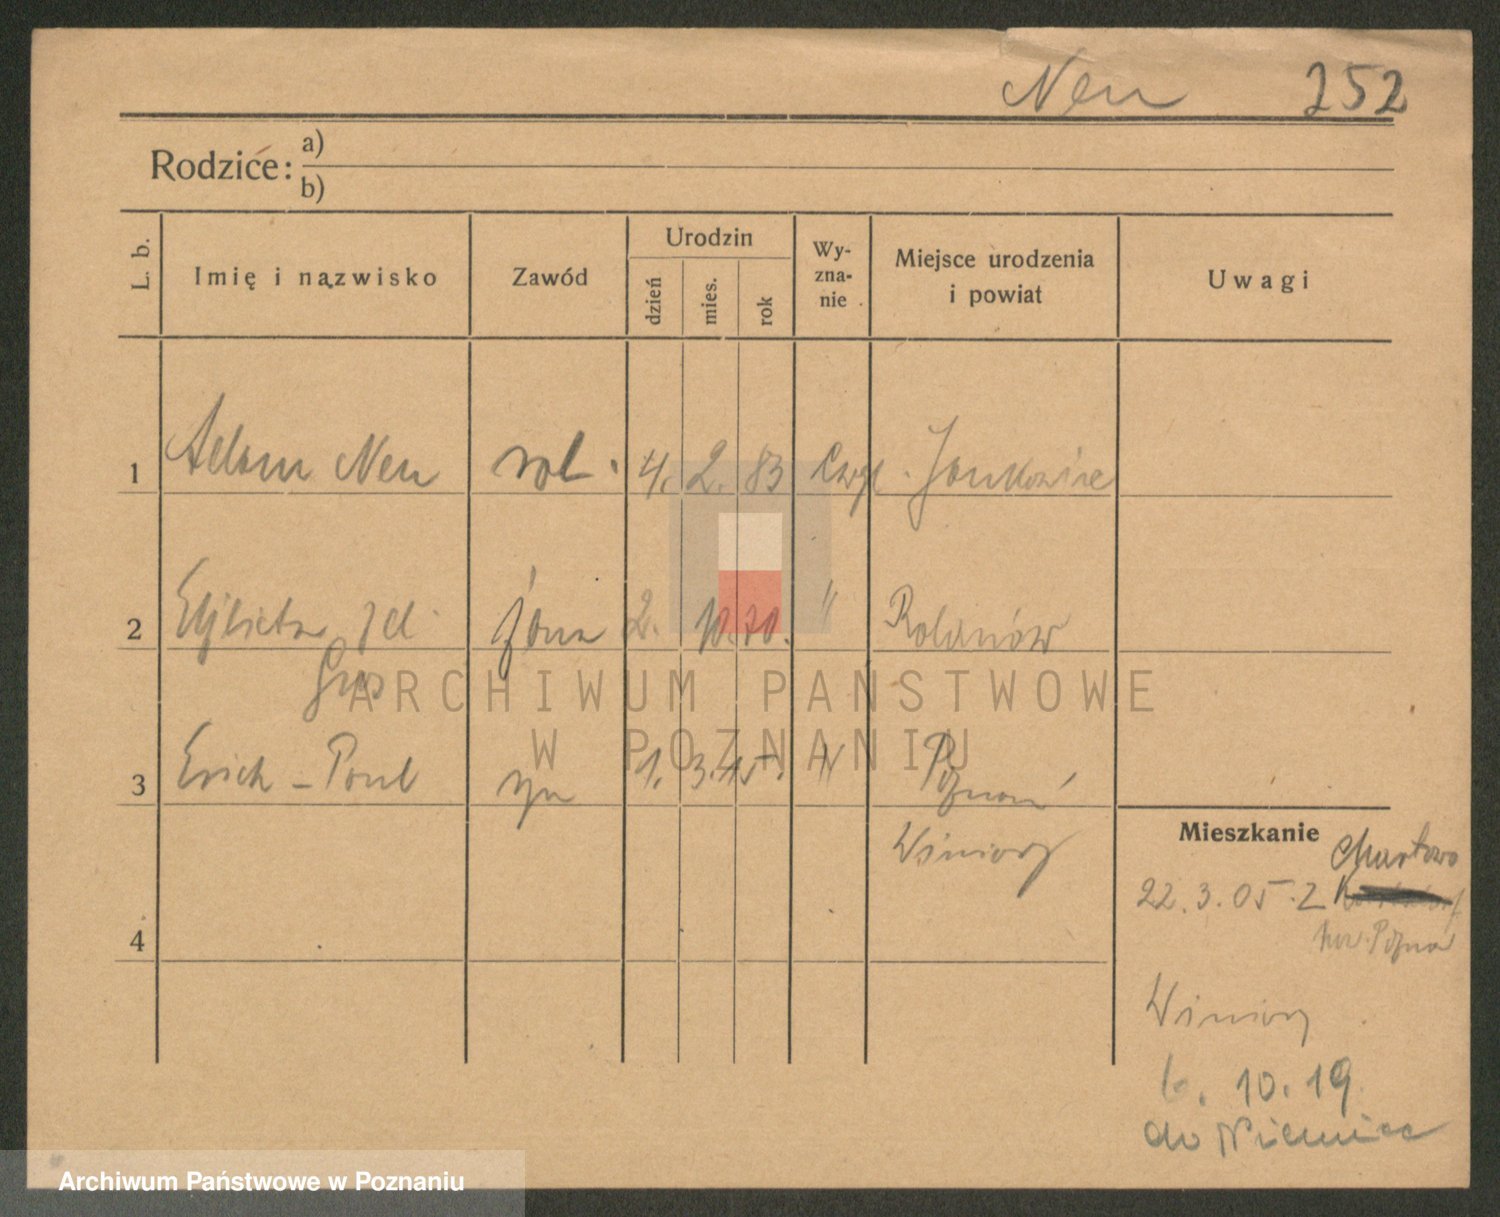 Neu 252
Rodzice: a)
b)
L. b. Imię i nazwisko Zawód Urodzin dzień mies. rok Wy-zna-nie Miejsce urodzenia i powiat Uwagi
1 Adam Neu rol. 4. 2. 83 Ewgl. Jankowice
2 Elżbieta żona 2. 10. "
3 Erich-Paul syn 1. 3. 15. " Poznań
Winiary
Mieszkanie Chartowo
22.3.05. Z
pow. Pozna
4
Winiary
6. 10. 19
do Niemiec
ARCHIWUM PAŃSTWOWE
W POZNANIU
Archiwum Państwowe w Poznaniu